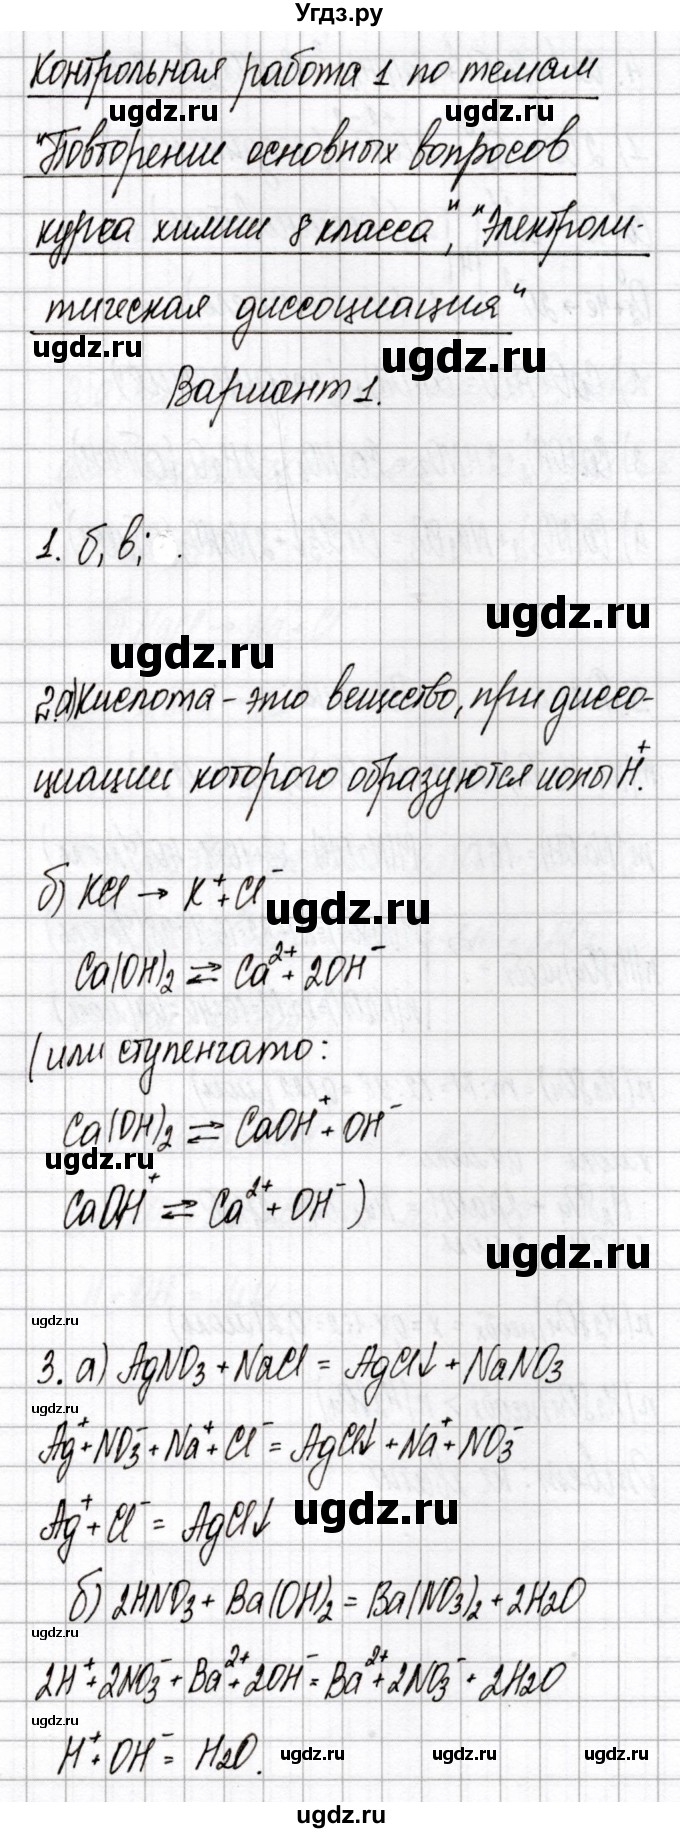 Угдз.ру
Контрольная работа 1 по темам
ugdz.ru ugdz.ru
"Повторение основных вопросов
курса химии 8 класса", "Электроли-
тическая диссоциация"
ugdz.ru ugdz.ru
Вариант 1.
1. б, в; .
ugdz.ru
ugdz.ru
2.а) Кислота - это вещество, при диссо-
циации которого образуются ионы H⁺.
б) KCl → K⁺ + Cl⁻
ugdz.ru
Ca(OH)₂ ⇄ Ca²⁺ + 2OH⁻
(или ступенчато:
Ca(OH)₂ ⇄ CaOH⁺ + OH⁻
ugdz.ru
CaOH⁺ ⇄ Ca²⁺ + OH⁻)
ugdz.ru
ugdz.ru
3. а) AgNO₃ + NaCl = AgCl↓ + NaNO₃
ugdz.ru
Ag⁺ + NO₃⁻ + Na⁺ + Cl⁻ = AgCl↓ + Na⁺ + NO₃⁻
ugdz.ru
Ag⁺ + Cl⁻ = AgCl↓
б) 2HNO₃ + Ba(OH)₂ = Ba(NO₃)₂ + 2H₂O
ugdz.ru
2H⁺ + 2NO₃⁻ + Ba²⁺ + 2OH⁻ = Ba²⁺ + 2NO₃⁻ + 2H₂O
ugdz.ru
H⁺ + OH⁻ = H₂O.
ugdz.ru ugdz.ru ugdz.ru
ugdz.ru